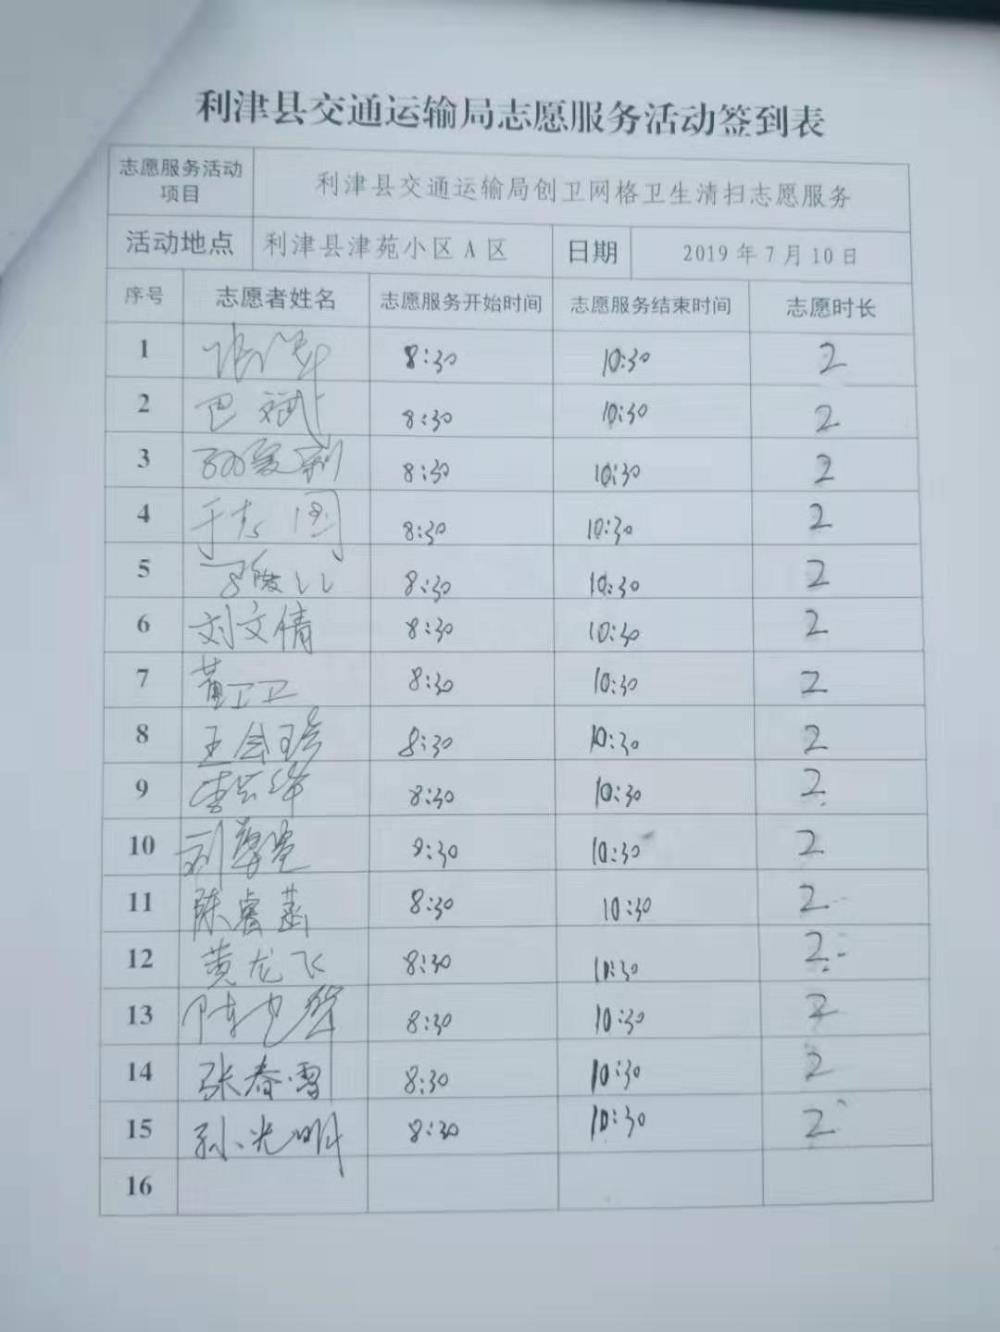 利津县交通运输局志愿服务活动签到表
志愿服务活动项目 利津县交通运输局创卫网格卫生清扫志愿服务
活动地点 利津县津苑小区A区 日期 2019年7月10日
序号 志愿者姓名 志愿服务开始时间 志愿服务结束时间 志愿时长
1 8:30 10:30 2
2 巴斌 8:30 10:30 2
3 8:30 10:30 2
4 于志国 8:30 10:30 2
5 8:30 10:30 2
6 刘文倩 8:30 10:30 2
7 黄卫卫 8:30 10:30 2
8 8:30 10:30 2
9 8:30 10:30 2
10 10:30 2
11 陈睿菡 8:30 10:30 2
12 黄龙飞 8:30 10:30 2
13 8:30 10:30 2
14 张春雪 8:30 10:30 2
15 孙光明 8:30 10:30 2
16